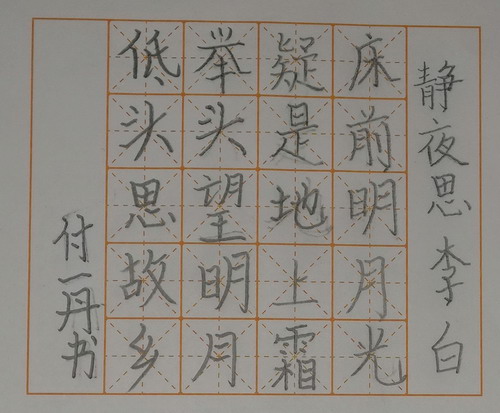 静夜思 李白
床前明月光
疑是地上霜
举头望明月
低头思故乡
付一丹书